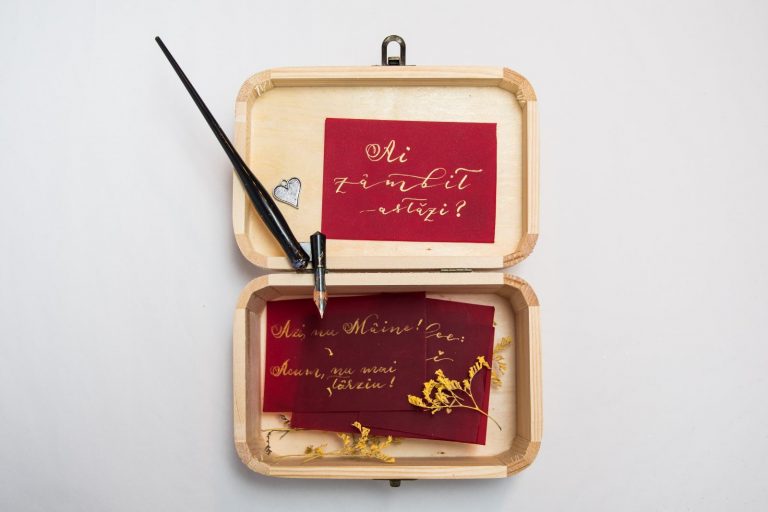 Ai
zâmbit
astăzi?
Azi, nu Mâine!
Acum, nu mai
târziu!